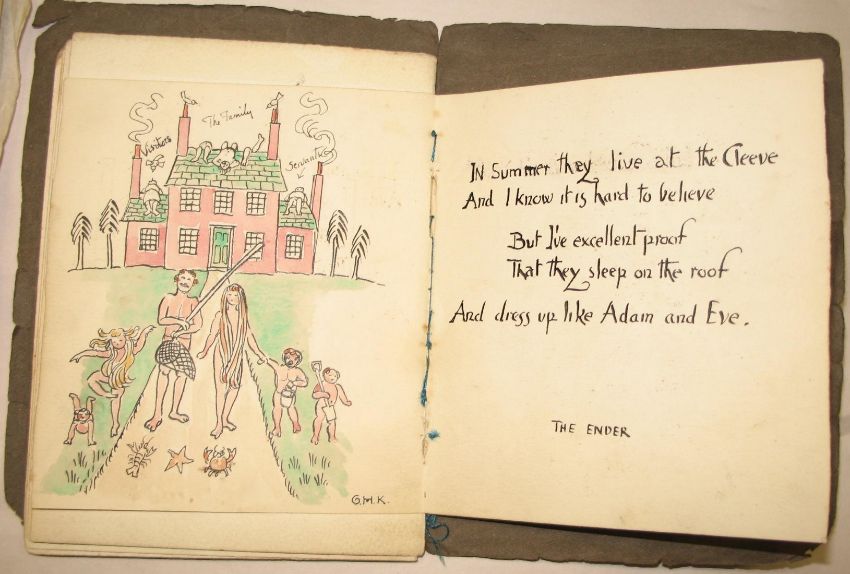 The Family
Visitors
Servants
G.M.K.
IN Summer they live at the Cleeve
And I know it is hard to believe
But I've excellent proof
That they sleep on the roof
And dress up like Adam and Eve.
THE ENDER